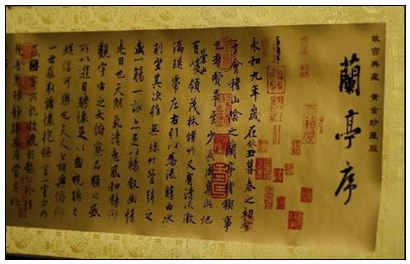 故宮典藏 黃金珍藏版
蘭亭序
永和九年歲在癸丑暮春之初會
于會稽山陰之蘭亭脩稧事
也群賢畢至少長咸集此地
有崇山峻領茂林脩竹又有清流激
湍暎帶左右引以為流觴曲水
列坐其次雖無絲竹管弦之
盛一觴一詠亦足以暢敘幽情
是日也天朗氣清惠風和暢仰
觀宇宙之大俯察品類之盛
所以遊目騁懷足以極視聽之
娛信可樂也夫人之相與俯仰
一世或取諸懷抱悟言一室之內